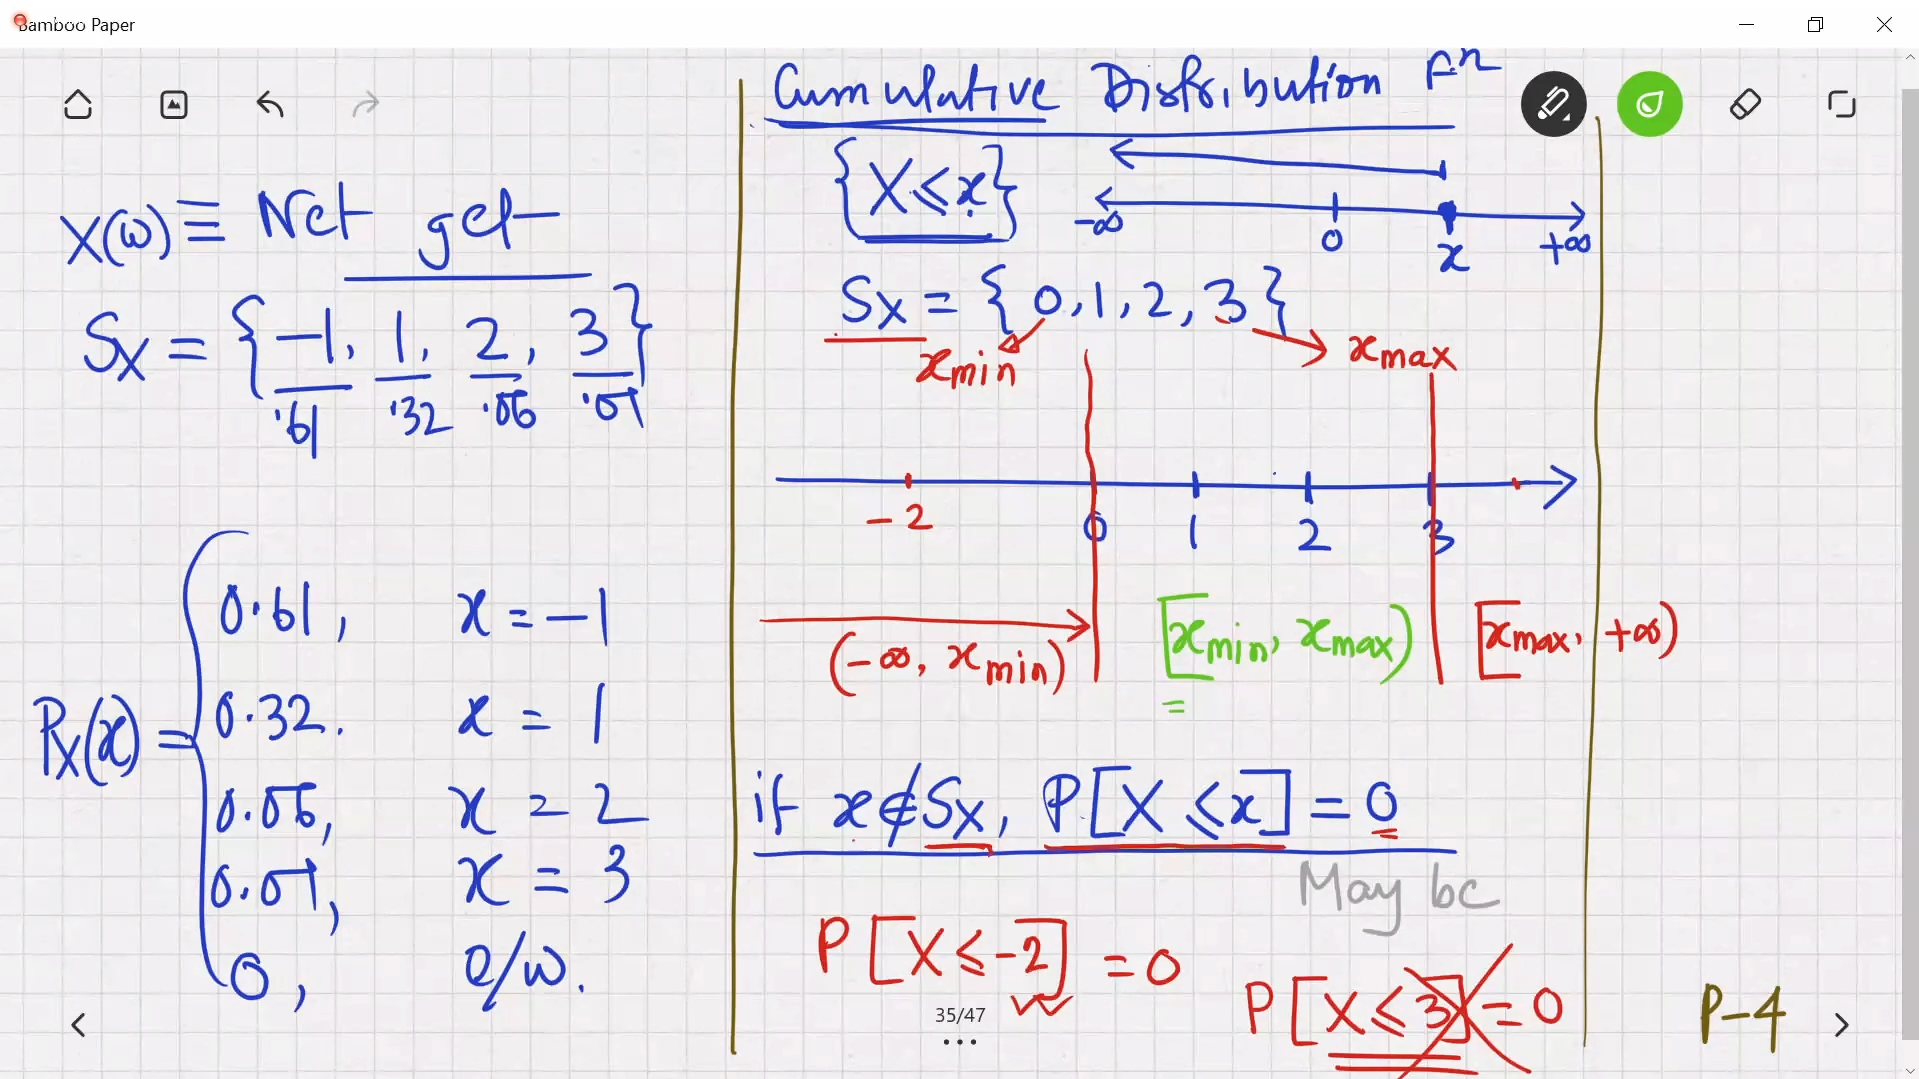 Bamboo Paper
X(ω) ≡ Net get
S_X = {-1, 1, 2, 3}
.61 .32 .06 .01
P_X(x) =
0.61, x = -1
0.32. x = 1
0.06, x = 2
0.01, x = 3
0, o/w.
Cumulative Distribution Fⁿ
{X ≤ x}
-∞ 0 x +∞
S_X = {0, 1, 2, 3}
x_min x_max
-2 0 1 2 3
(-∞, x_min) [x_min, x_max) [x_max, +∞)
=
if x ∉ S_X, P[X ≤ x] = 0
May be
P[X ≤ -2] = 0
P[X ≤ 3] = 0
35/47
P-4